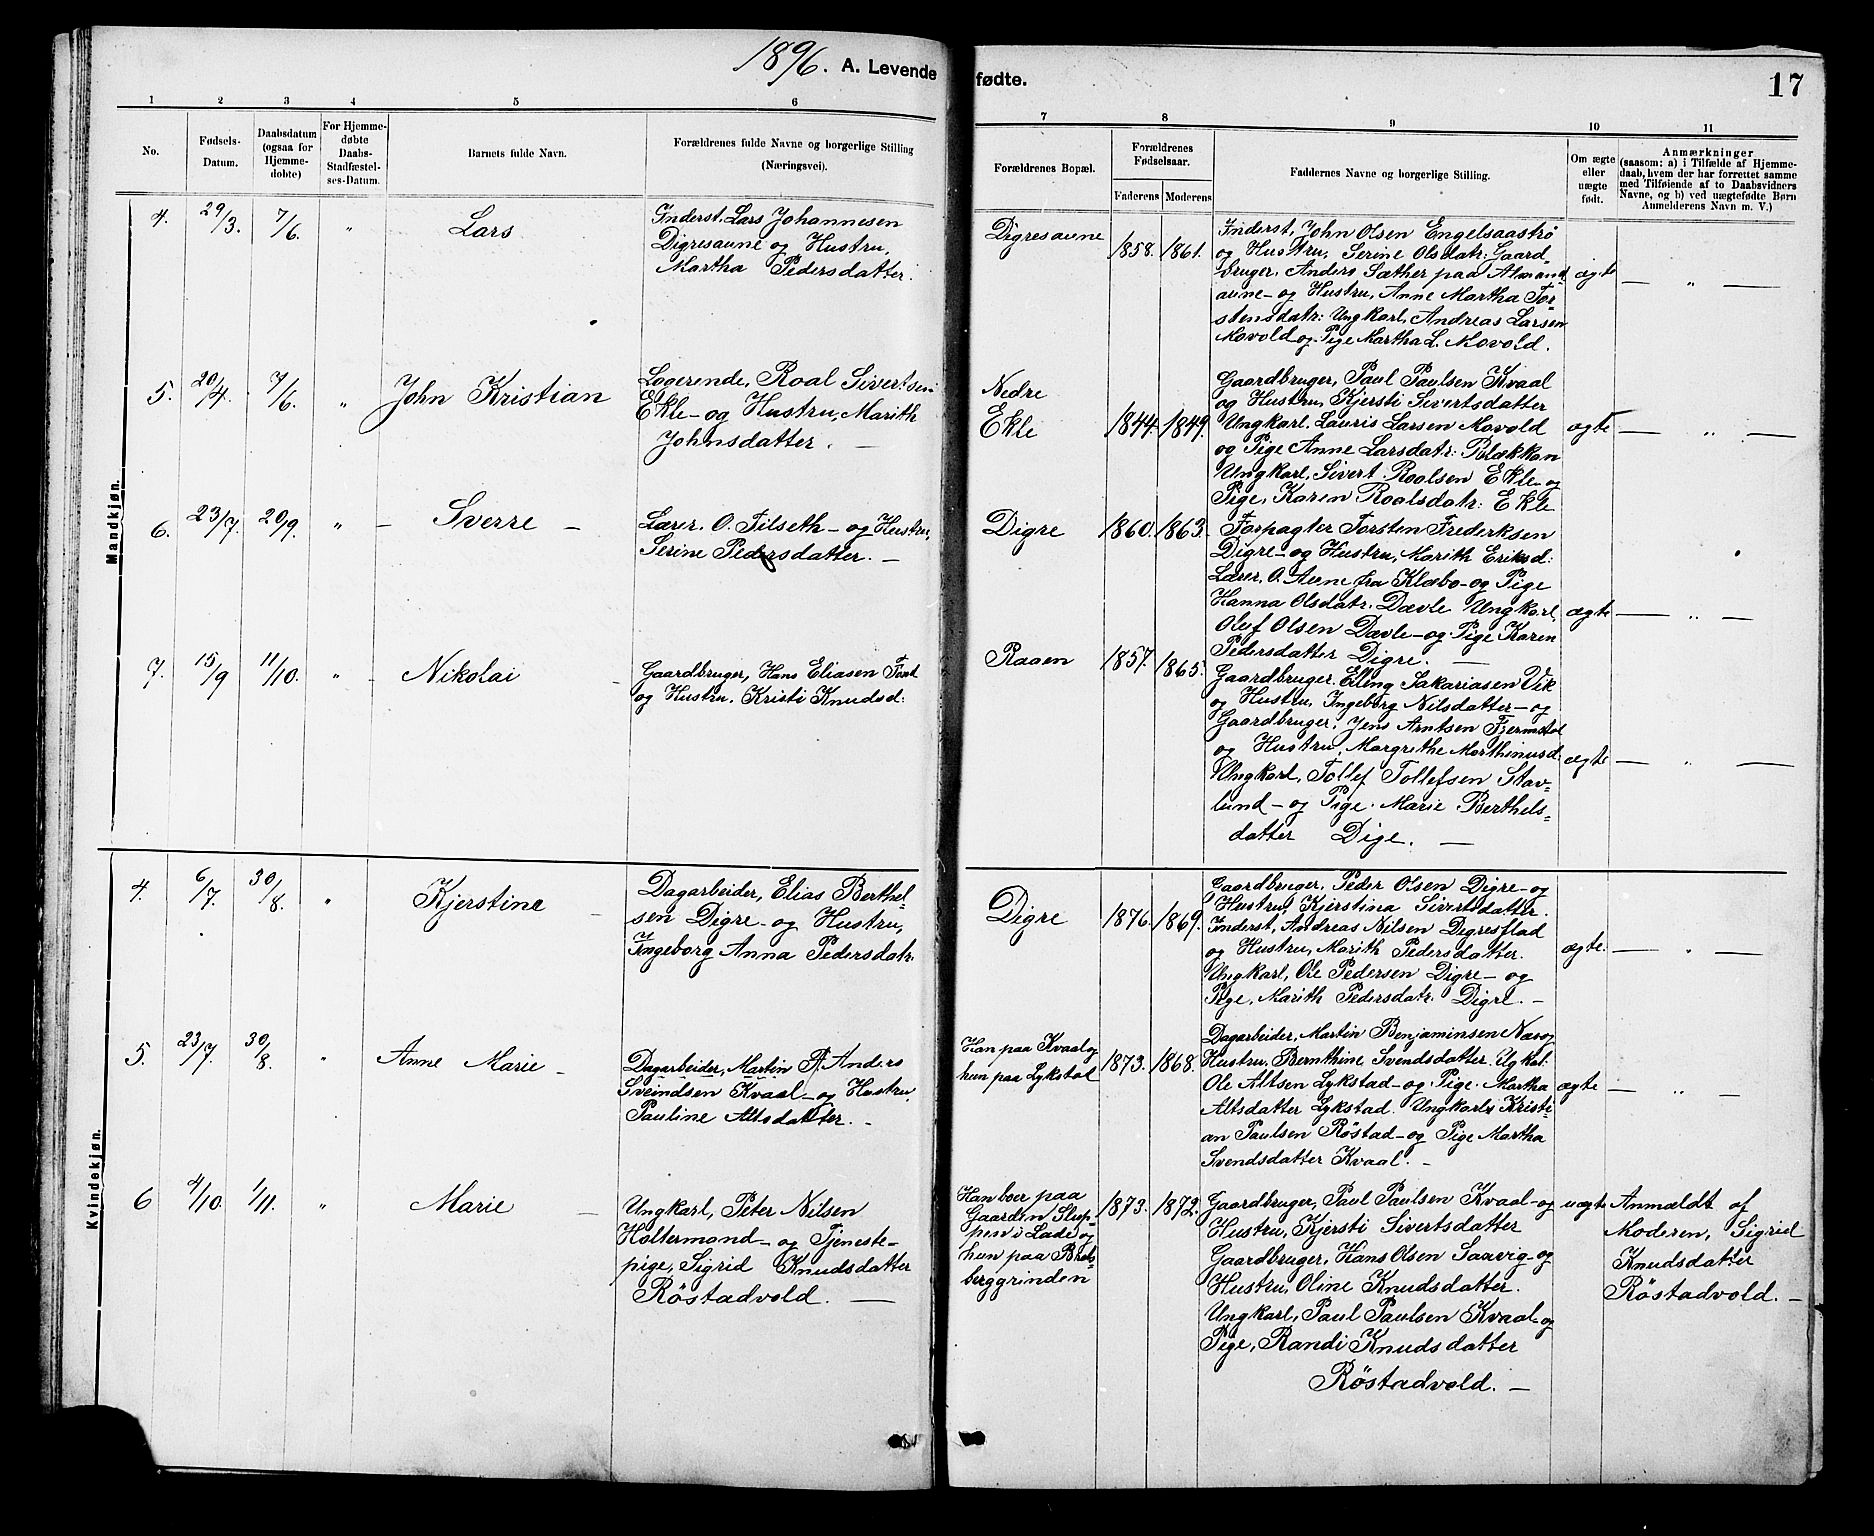 1896. A. Levende
fødte.
17
1
2
3
4
5
6
7
8
9
10
11
No.
Fødsels-
Datum.
Daabsdatum
(ogsaa for
Hjemme-
døbte)
For Hjemme-
døbte
Daabs-
Stadfæstel-
ses-Datum.
Barnets fulde Navn.
Forældrenes fulde Navne og borgerlige Stilling
(Næringsvei).
Forældrenes Bopæl.
Forældrenes
Fødselsaar.
Faderens
Moderens
Faddernes Navne og borgerlige Stilling.
Om ægte
eller
uægte
født.
Anmærkninger
(saasom: a) i Tilfælde af Hjemme-
daab, hvem der har forrettet samme
med Tilføiende af to Daabsvidners
Navne, og b) ved uægtefødte Børn
Anmelderens Navn m. V.)
Mandkjøn.
4. 29/3. 7/6. " Lars
Inderst, Lars Johannesen
Digresaune og Hustru,
Martha Pedersdatter.
Digresaune 1858. 1861.
Inderst, John Olsen Engelsaastrø
og Hustru, Serine Olsdatr: Gaard-
bruger, Anders Sæther paa Almand
aune - og Hustru, Anne Martha Tor-
stensdatr: Ungkarl, Andreas Larsen
Movold og Pige Martha L. Movold.
ægte — " —
5. 20/4. 7/6. " John Kristian
Logerende, Roal Sivertsen
Ekle - og Hustru, Marith
Johnsdatter. —
Nedre
Ekle 1844. 1849.
Gaardbruger, Paul Paulsen Kvaal
og Hustru, Kjersti Sivertsdatter
Ungkarl, Lauris Larsen Movold
og Pige Anne Larsdatr: Blækkan
Ungkarl, Sivert Roalsen Ekle - og
Pige, Karen Roalsdatr: Ekle
ægte — " —
6. 23/7. 20/9. " — Sverre —
Lærer, O. Filseth - og Hustru,
Serine Pedersdatter. —
Digre 1860. 1863.
Forpagter Torsten Frederksen
Digre - og Hustru, Marith Eriksd:
Lærer, O. Aune fra Klæbo - og Pige
Hanna Olsdatr. Dævle Ungkarl,
Olef Olsen Dævle - og Pige Karen
Pedersdatter Digre. —
ægte — " —
7. 15/9 11/10. " - Nikolai —
Gaardbruger, Hans Eliasen
og Hustru, Kristi Knudsd:
Raaen 1857. 1865.
Gaardbruger. Elling Sakariasen Vik
og Hustru, Ingeborg Nilsdatter - og
Gaardbruger, Jens Arntsen Fjermstad
og Hustru, Margrethe Marthinusd:
Ungkarl, Tollef Tollefsen Stav-
lund - og Pige. Marie Berthels-
datter Dige. —
ægte — " —
Kvindekjøn.
4. 6/7. 30/8. " Kjerstine —
Dagarbeider, Elias Berthel-
sen Digre - og Hustru,
Ingeborg Anna Pedersdatr.
Digre 1876. 1869.
Gaardbruger, Peder Olsen Digre - og
Hustru, Kjerstina Sivertsdatter.
Inderst, Andreas Nilsen Digresflad
og Hustru, Marith Pedersdatter.
Ungkarl, Ole Pedersen Digre - og
Pige, Marith Pedersdatr. Digre. -
ægte. — " —
5. 23/7. 30/8. " Anne Marie —
Dagarbeider, Martin P. Anders
Sveindsen Kvaal - og Hustru,
Pauline Altsdatter. -
Han paa Kvaal og
hun paa Lykstad 1873. 1868.
Dagarbeider, Martin Benjaminsen Næs og
Hustru, Bernthine Svendsdatter. Ugkal.
Ole Altsen Lykstad - og Pige. Martha
Altsdatter Lykstad. Ungkarl, Kristi-
an Paulsen Röstad - og Pige Martha
Svendsdatter Kvaal. -
ægte — " —
6 4/10. 1/11. " Marie —
Ungkarl, Peter Nilsen
Holtermand - og Tjeneste-
pige, Sigrid Knudsdatter
Röstadvold. —
Han boer paa
Gaarden Slup-
pen i Lade og
hun paa Brets-
berggrinden 1873. 1872.
Gaardbruger, Paul Paulsen Kvaal - og
Hustru, Kjersti Sivertsdatter
Gaardbruger, Hans Olsen Saavig - og
Hustru, Oline Knudsdatter.
Ungkarl, Paul Paulsen Kvaal - og
Pige, Randi Knudsdatter
Röstadvold. —
uægte
Anmældt af
Moderen, Sigrid
Knudsdatter
Röstadvold. —